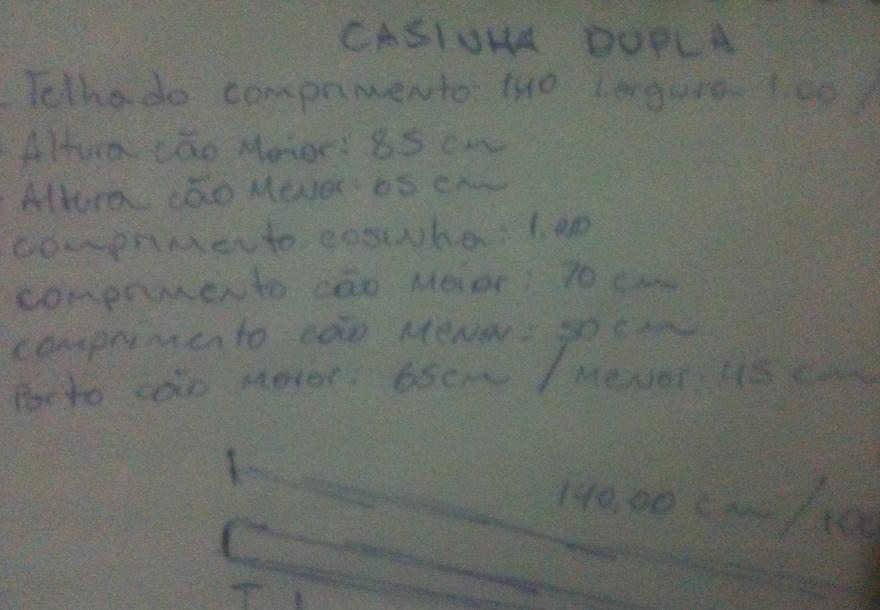 CASINHA DUPLA
- Telhado comprimento: 140 Largura 1.00 /
- Altura cão Maior: 85 cm
- Altura cão Menor: 65 cm
comprimento cosinha: 1.00
comprimento cão Maior: 70 cm
comprimento cão Menor: 50 cm
Porta cão maior: 65cm / Menor: 45 cm
140,00 cm / 100